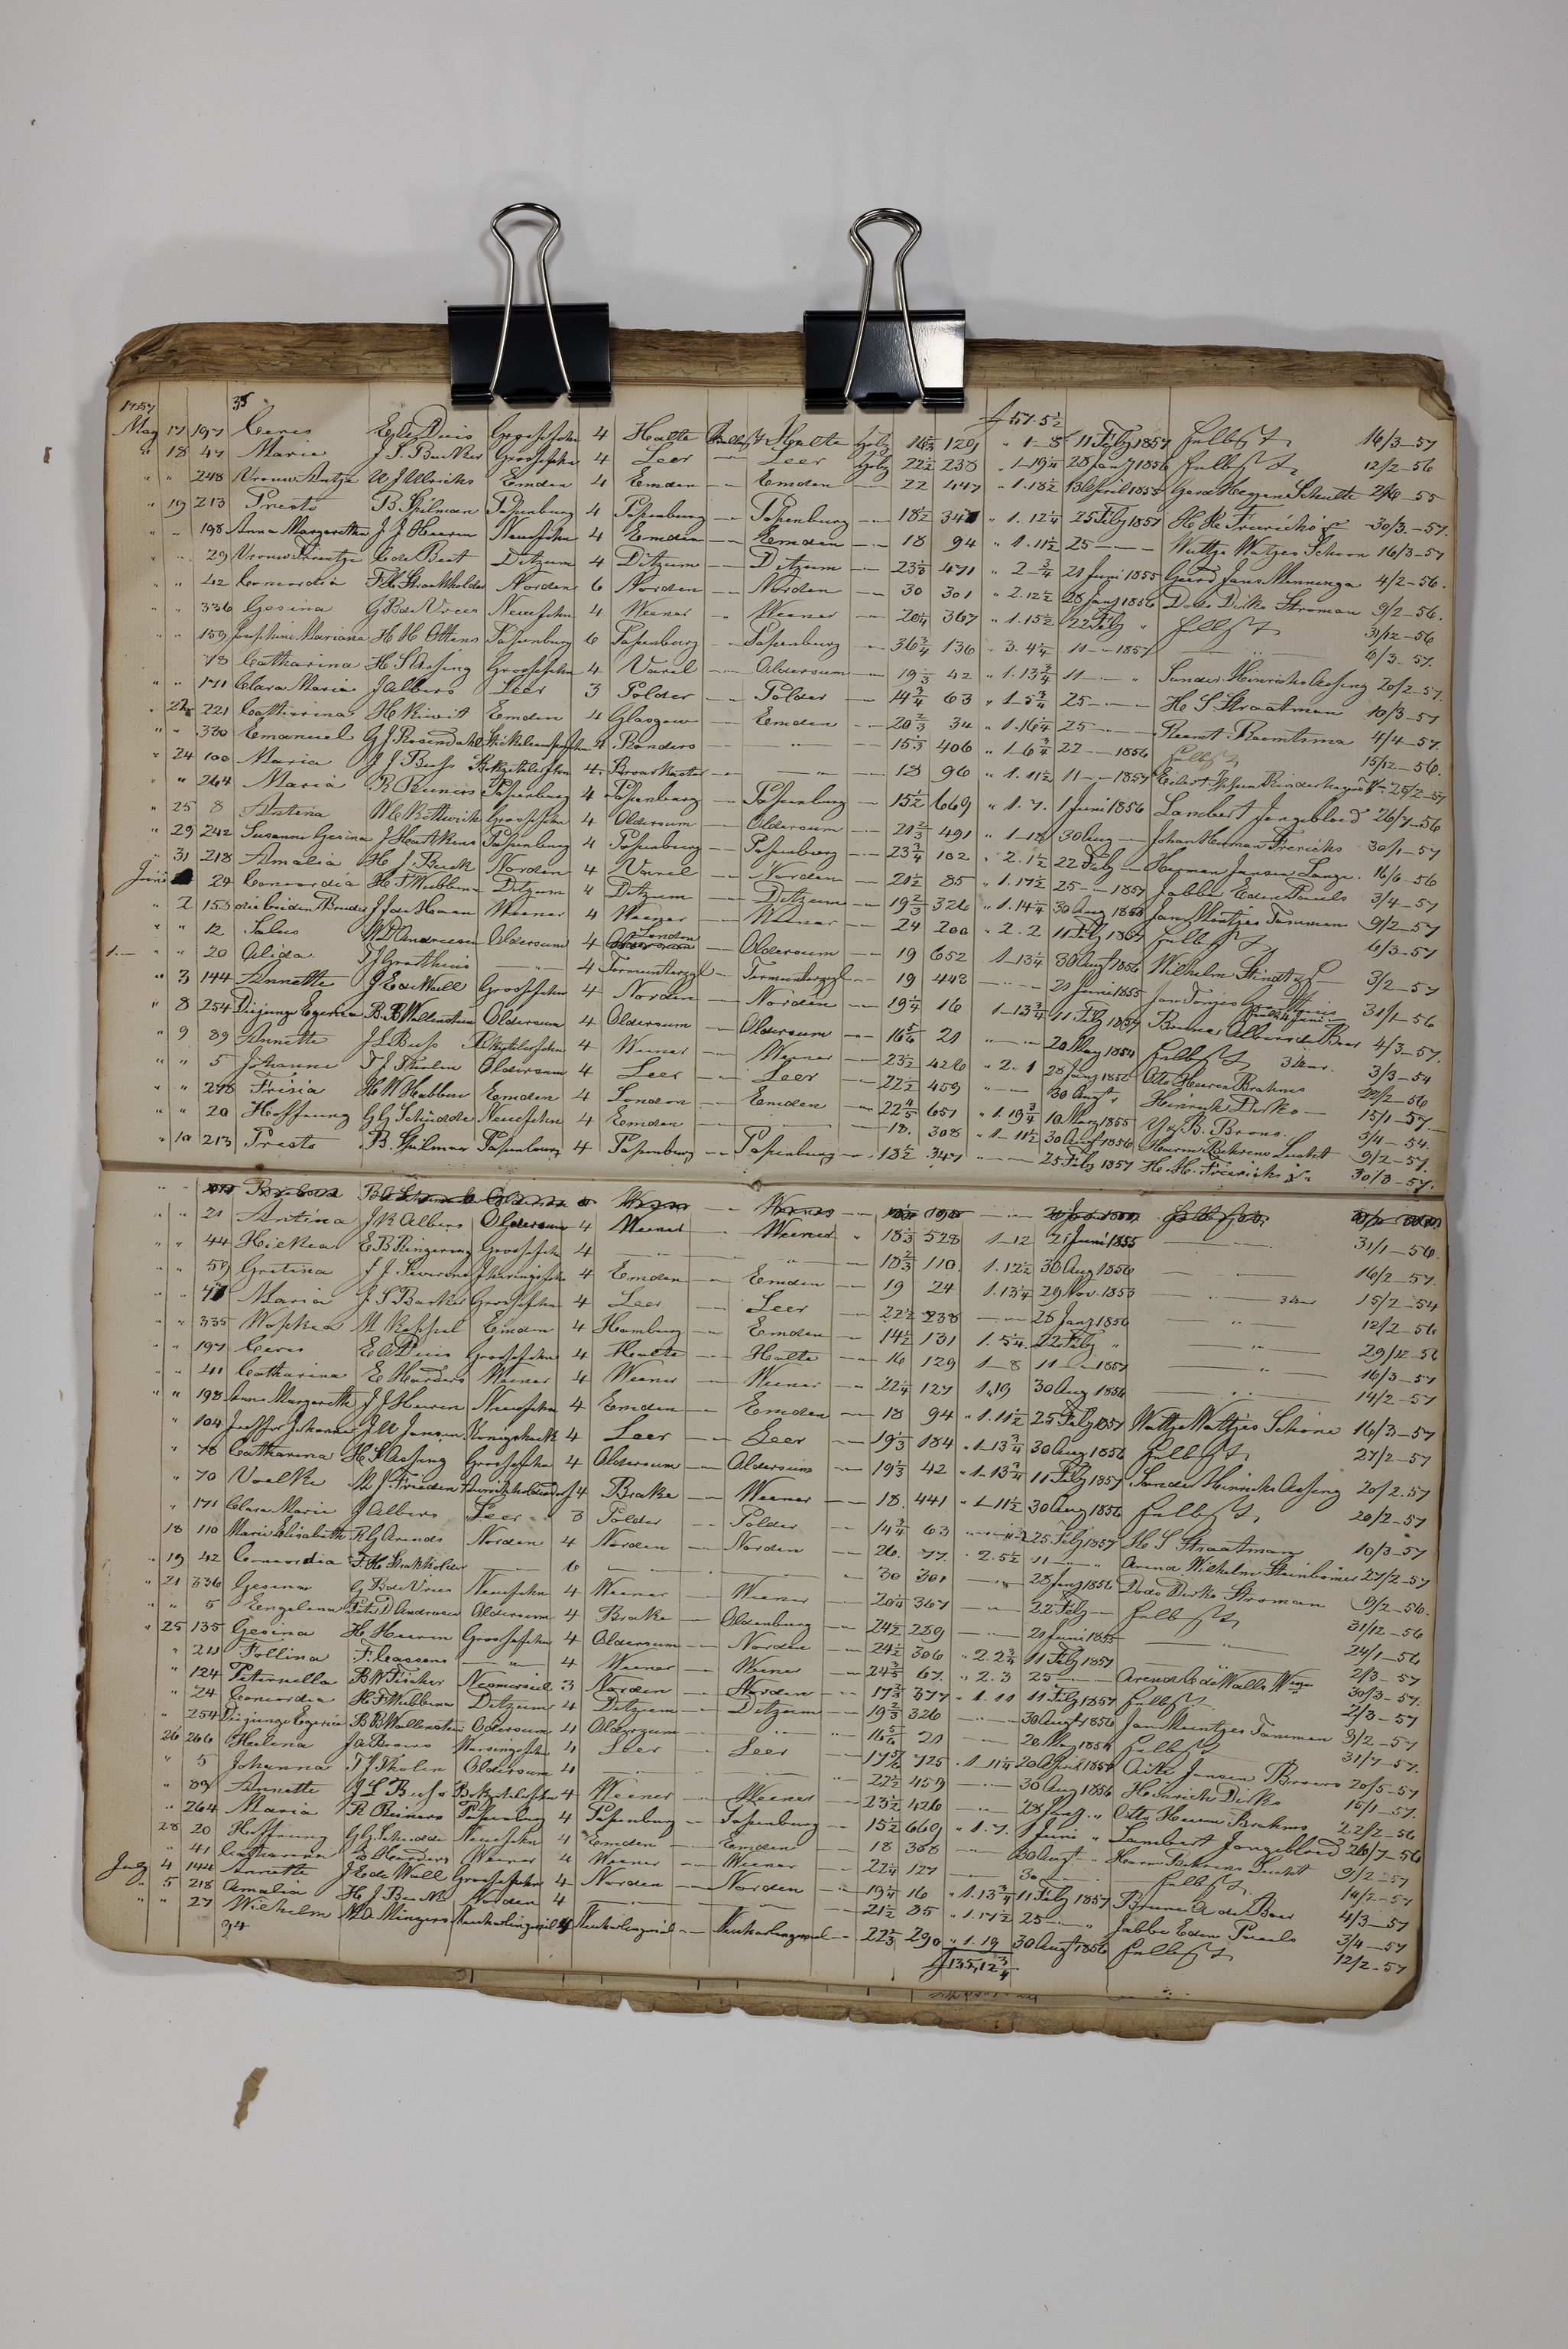 1857 38 57.5½
May 17 197 Ceres E de Duis Grossefehn 4 Halte Ballast Halte Holz 129 " 1-8 11 Febr 1857 selbst 16/3-57
" 18 47 Maria J. S. Bucker Grossefehn 4 Leer — Leer Holz 22½ 238 " 1-19¼ 28 Jany 1856 selbst 12/2-56
" " 248 Vrouw Antje W J Ulrichs Emden 4 Emden — Emden — 22 447 " 1.18½ 13 April 1855 Gerd Heyen Schulte
" 19 213 Presto B. Spilman Papenburg 4 Papenburg — Papenburg — 18½ 347 " 1.12¼ 25 Febr 1857 30/3-57.
" " 198 Anna Margaretha J. J. Heeren Neuefehn 4 Emden — Emden — 18 94 " 1.11½ 25 — Wattje Watjes Schoon 16/3-57
" " 29 Vrouw Trientje C de Beet Ditzum 4 Ditzum — Ditzum — 471 " 2-¾ 21 Juni 1855 Geerd Jans Menninga 4/2-56.
" " 42 Concordia F. H. Strackholder Norden 6 Norden — Norden — 30 301 " 2.12½ 28 Jany 1856 Dodo Dirks Stroman 9/2-56.
" " 336 Gesina G B de Vries Neuefehn 4 Weener " Weener — 20¼ 367 " 1.15½ 22 Febr " selbst 31/12-56
" " 159 Josephine Mariane H H Ottens Papenburg 6 Papenburg — Papenburg — 136 " 3.4¼ 11 — 1857 — " — 6/3-57.
78 Catharina H S Assing Grossefehn 4 Varel — Oldersum — 19⅓ 42 " 1.13¾ 11 — " Sander Hinrichs Assing 20/2-57.
" " 171 Clara Maria J Albers Leer 3 Polder — Polder — 14¾ 63 " 1-5¾ 25 — H. S. Straatman 10/3-57
" 22 221 Catharina H Kiewit Emden 4 Glasgow — Emden — 20⅔ 34 " 1.16¼ 25 — " Reemt Reemtsma 4/4-57.
" " 330 Emanuel G J Rosendahl 4 Randers — " — 15⅓ 406 " 1.6¾ 22 — 1856 selbst 15/12-56.
" 24 100 Maria J J Buss 4 — — 18 96 " 1.11½ 11 — 1857 25/2-57
" " 264 Maria R Reiners Papenburg 4 Papenburg — Papenburg — 15½ 669 " 1.7. 1 Juni 1856 Lambert Jongebloed 26/7-56
" 25 8 Antina Grossefehn 4 Oldersum — Oldersum — 21⅔ 491 " 1-18 30 Aug — Johan Herman Frerichs 30/1-57
" 29 242 Susanna Gesina J Hartkens Papenburg 4 Papenburg — Papenburg — 23¾ 102 " 2.1½ 22 Febr — Herman Jansen Lange. 16/6-56
" 31 218 Amalia H. J. Beek Norden 4 Varel — Norden — 21½ 85 " 1.17½ 25 — 1857 Jabbe Eden Pauls 3/4-57
Juni 24 Concordia H. F. Webbena Ditzum 4 Ditzum — Ditzum — 19⅔ 326 " 1.14¼ 30 Aug 1856 Jan Muntjes Tammen 9/2-57
" 2 153 die beiden Brüder J J de Haan Weener 4 Weener — Weener — 24 200 " 2.2 11 Febr 1857 selbst 6/3-57
" " 12 Salus W D Andreesen Oldersum 4 London — Oldersum — 19 652 1-13¼ 30 Augt 1856 Wilhelm 3/2-57
1.— " 20 Alida — " — 4 Termunterzyl — Termunterzyl — 19 443 — " — 21 Juni 1855 31/1-56
" 3 144 Annette J. E de Wall Grossefehn 4 Norden — Norden — 19¼ 16 1-13¾ 11 Febr 1857 Brune Albers de Boer 4/3-57.
" 8 254 Die junge Egeria B. B. Wallenstein Oldersum 4 Oldersum — Oldersum — 16⅚ 21 — " — 20 May 1854 selbst 3 Jahr. 3/3-54
" 9 89 Annette J. L. Buss 4 Weener — Weener — 23½ 426 " 2.1 28 Jany 1856 Otto Heeren Brahms 22/2-56
" " 5 Johanna T. J. Tholen Oldersum 4 Leer — Leer — 22½ 459 — " — 30 Augt " Heinrich Dirks — 15/1-57.—
" " 278 Frisia H. W. Habben Emden 4 London — Emden — 22⅘ 651 " 1.19¾ 10 März 1855 Y & B. Brons. 5/4-54.
" " 20 Hoffnung G G Schüdde Neuefehn 4 Emden — — 18. 308 " 1-11½ 30 Augt 1856 Harm Behrens Lucht 9/2-57.
" 10 213 Presto B. Spilman Papenburg 4 Papenburg — Papenburg — 18½ 347 — " — 25 Febr 1857 30/3-57.
" " 21 Antina J R Albers Oldersum 4 Weener — Weener " 18⅓ 528 1-12 21 Juni 1855 — 31/1-56.
" " 44 Heikea E B Ringering Grossefehn 4 — " — 18⅔ 110. 1.12½ 30 Aug 1856 — 16/2-57.
" " 59 Gretina J. J. Sieverens Jheringsfehn 4 Emden — Emden — 19 24 1.13¼ 29 Nov. 1853 — " — 3 Jahr 15/2-54
" " 47 Maria J. S Barker Grossefehn 4 Leer — Leer — 22½ 238 — " — 28 Jany 1856 — 12/2-56
" " 335 Wopkea M. Keppel Emden 4 Hamburg — Emden — 14½ 131 1.5¼. 22 Febr " — " — 29/12-56
" " 197 Ceres E. de Duis Grossefehn 4 Halte — Halte — 16 129 1-8 11 — 1857 — " — 16/3-57
" " 41 Catharina E Harders Weener 4 Weener — Weener — 22¼ 127 1,19 30 Aug 1856 — " — 14/2-57
" " 198 Anna Margareth J J Heeren Neuefehn 4 Emden — Emden — 18 94 " 1.11½ 25 Febr 1857 Wattje Wattjes Schöne 16/3-57
" 104 Juffer Johanna J. W Jansen Königshoek 4 Leer — Leer — 19⅓ 184 " 1-13¾ 30 Aug 1856 selbst 27/2-57
" 78 Catharina H. S Assing Grossefehn 4 Oldersum — Oldersum — 19⅓ 42 " 1.13¾ 11 Febr 1857 Sander Hinrichs Assing 20/2.57
" 70 Voelke M J Frieden 4 Brake — Weener — 18. 441 " 1-11½ 30 Aug 1856 selbst 20/2-57
" 171 Clara Maria J Albers Leer 3 Polder — Polder — 14¾ 63 25 Febr 1857 H. S Straatman 10/3-57
18 110 Marie Elisabeth R G Arends Norden 4 Norden — Norden — 26. 77. " 2.5½ 11 — " Arend Wilhelm Steinbömer 27/2-57
" 19 42 Concordia F. H. Strackholder — 6 — — " 30 301 — " — 28 Jany 1856 Dodo Dirks Stroman 9/2-56.
" 21 336 Gesina G B de Vries Neuefehn 4 Weener — Weener — 20¼ 367 — " 22 Febr — selbst 31/12-56
" " 5 Engelina Oldersum 4 Brake — Oldenburg — 24½ 289 — " — 21 Juni 1855 — " — 24/1-56
" 25 135 Gesina H. Heeren Grossefehn 4 Oldersum — Norden — 24½ 306 " 2.2¾ 11 Febr 1857 — 2/3-57
" 211 Follina F. Cassens — " — 4 Weener — Weener — 67. " 2.3 25 — Arend C de Walle 30/3-57.
" 124 Peternella B W Fischer Nesmersiel 3 Norden — Norden — 377 " 1.11 11 Febr 1857 selbst 2/3-57
" 24 Concordia H F Webbena Ditzum 4 Ditzum — Ditzum — 19⅔ 326 — " — 30 Augt 1856 Jan Muntjes Tammen 9/2-57
" 254 Die junge Egeria B B Wallenstein Oldersum 4 Oldersum — " " 16⅚ 21 — " 20 May 1854 selbst 31/7-57.
26 266 Helena Ja Broers Warsingsfehn 4 Leer — Leer — 725 " 1 11¼ 20 April 1857 Aike Jansen Broers 20/5-57
" 5 Johanna T J Tholen Oldersum 4 — — " 22½ 459 — " — 30 Aug 1856 Heinrich Dirks 15/1-57.
" 89 Annette J L Buss 4 Weener — Weener — 23½ 426 — " — 28 Jany " Otto Heeren Brahms 22/2-56
" 264 Maria R Reiners Papenburg 4 Papenburg — Papenburg — 15½ 669 " 1.7. 1 Juni " Lambert Jongebloed 26/7-56
28 20 Hoffnung G G Schudde Neuefehn 4 Emden — Emden — 18 308 — 30 Augt " Harm Behrens Luchst 9/2-57
" 41 Catharina E Harders Weener 4 Weener — Weener — 22¼ 127 — 30 — selbst 14/2-57
July 4 144 Annette J E de Wall Grossefehn 4 Norden — Norden — 19¼ 16 " 1.13¾ 11 Febr 1857 Brune A de Boer 4/3-57
" 5 218 Amalia H J Beek Norden 4 — — 21½ 85 " 1.17½ 25 — " Jabbe Eden Pauels 3/4-57
" " 27 Wilhelm M. D. Mingers Neuharlingersiel 4 Neuharlingersiel — Neuharlingersiel — 22⅓ 290 " 1.19 30 Augt 1856 selbst 12/2-57
34 135,12¾